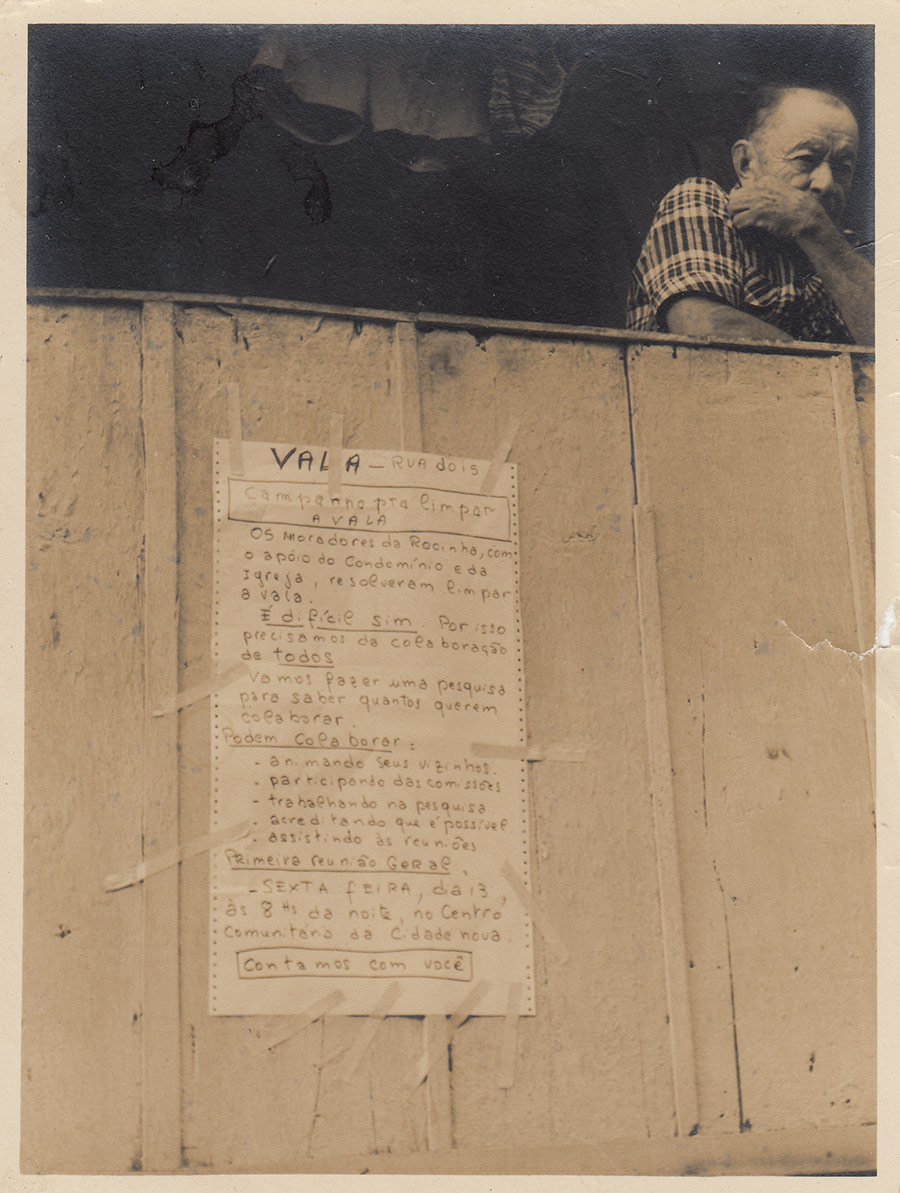 VALA - RUA dois
Campanha pra limpar
A VALA
OS Moradores da Rocinha, com
o apôio do Condomínio e da
Igreja, resolveram limpar
a vala.
É difícil sim. Por isso
precisamos da colaboração
de todos
Vamos fazer uma pesquisa
para saber quantos querem
colaborar.
Podem colaborar:
- animando seus vizinhos.
- participando das comissões
- trabalhando na pesquisa
- acreditando que é possível
- assistindo às reuniões
Primeira reunião Geral.
- SEXTA fEIRA, dia 13,
às 8 Hs da noite, no Centro
Comunitário da Cidade nova.
Contamos com você